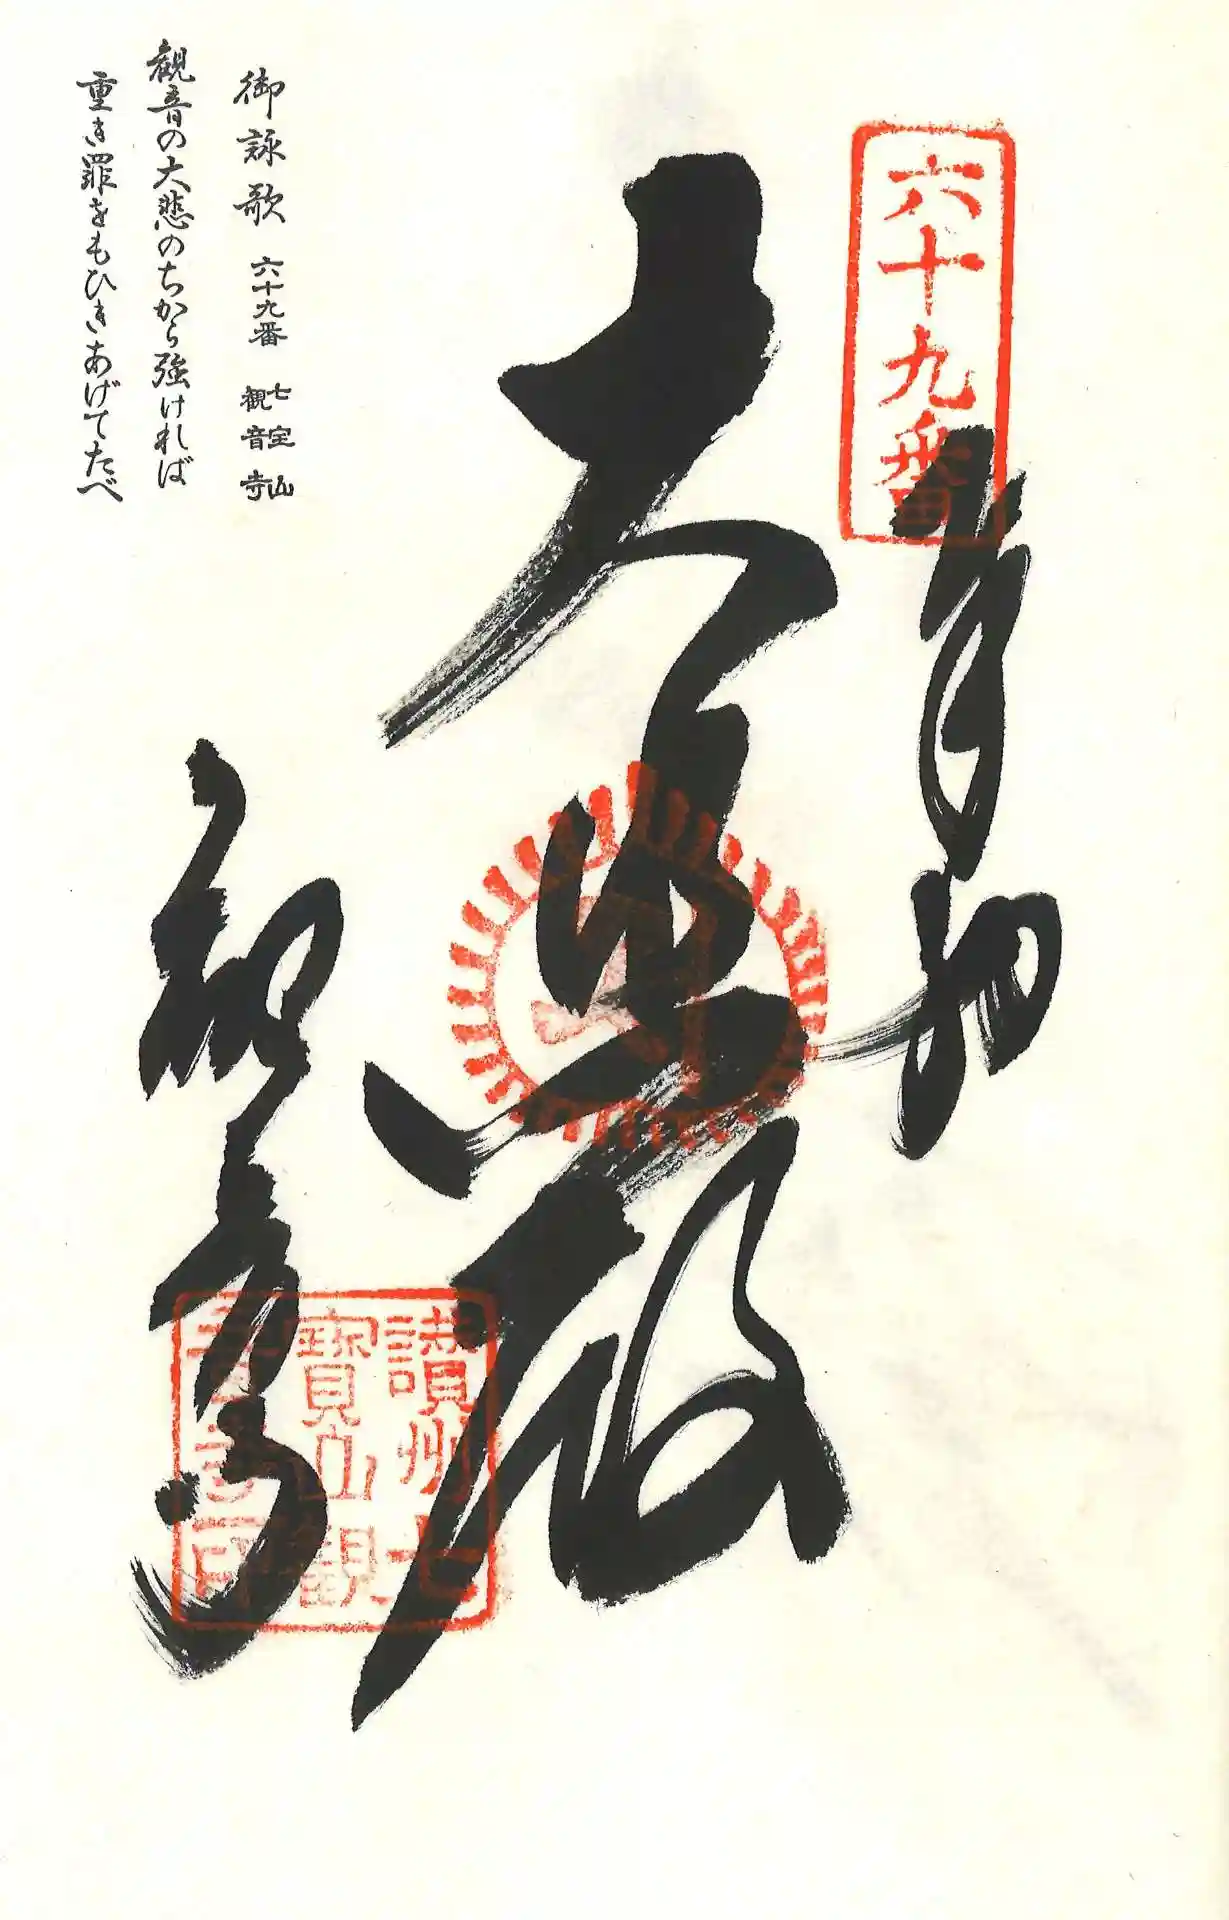 六十九番
奉納
大悲殿
観音寺
讃州七
寶山観
音寺印
御詠歌 六十九番 七宝山 観音寺
観音の大悲のちから強ければ
重き罪をもひきあげてたべ